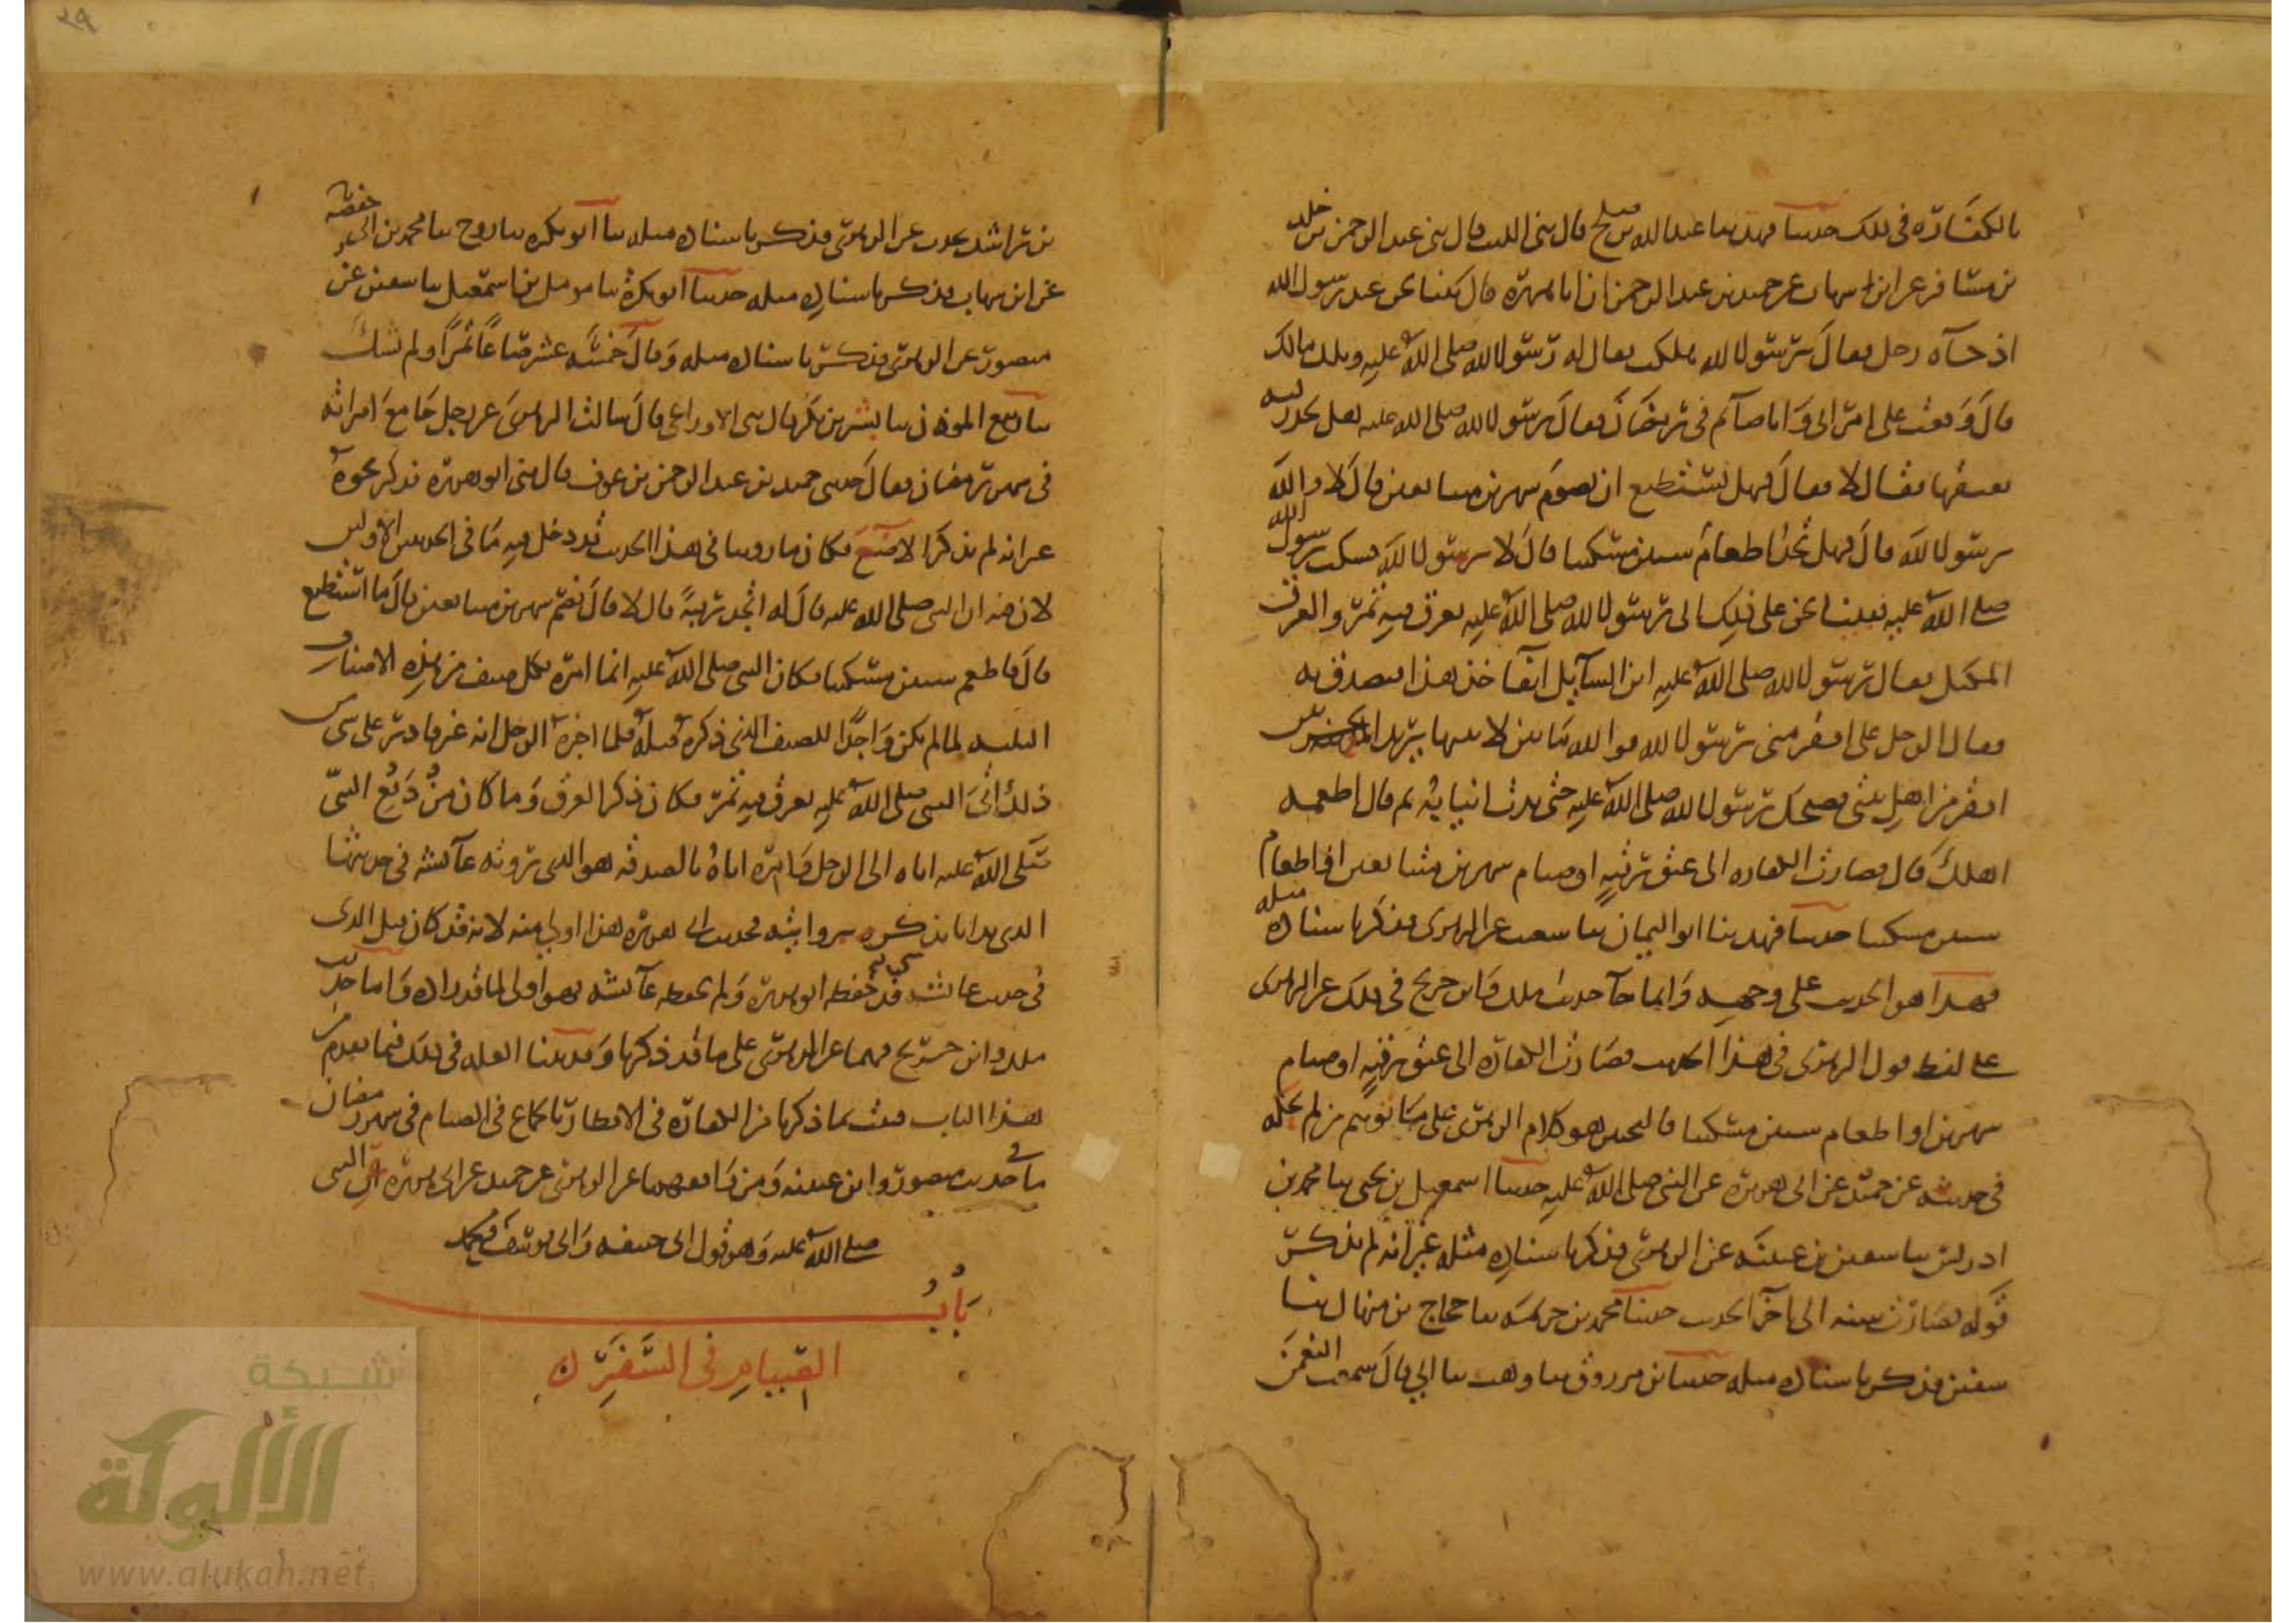 بالكفارة في ذلك حدثنا فهد ثنا عبد الله بن صلح قال ثني الليث قال ثني عبد الرحمن بن خلد
بن مسافر عن ابن شهاب عن حميد بن عبد الرحمن ان ابا هريرة قال بينا نحن عند رسول الله
اذ جآه رجل فقال يرسول الله هلكت فقال له رسول الله صلى الله عليه ويلك مالك
قال وقعت على امراتي وانا صآئم في رمضان فقال رسول الله صلى الله عليه هل تجد رقبه
تعتقها فقال لا فقال فهل تستطيع ان تصوم شهرين متتابعين قال لا والله
يرسول الله قال فهل تجد اطعام ستين مسكينا قال لا يرسول الله فسكت رسول الله
صلى الله عليه فبينا نحن على ذلك اتي رسول الله صلى الله عليه بعرق فيه تمر والعرق
المكتل فقال رسول الله صلى الله عليه اين السآئل آنفا خذ هذا فتصدق به
فقال الرجل على افقر مني يرسول الله فوالله ما بين لابتيها يريد الحرتين
افقر من اهل بيتي فضحك رسول الله صلى الله عليه حتى بدت انيابه ثم قال اطعمه
اهلك قال فصارت الكفاره الى عتق رقبة او صيام شهرين متتابعين او اطعام
ستين مسكينا حدثنا فهد ثنا ابو اليمان ثنا شعيب عن الزهري فذكر باسناده مثله
فهذا هو الحديث على وجهه وانما جآ حديث ملك وابن جريج في ذلك عن الزهري
على لفظ قول الزهري في هذا الحديث فصارت الكفارة الى عتق رقبة او صيام
شهرين او اطعام ستين مسكينا فالتخيير هو كلام الزهري على ما توهم من لم يحكه
في حديثه عن حميد عن ابي هريرة عن النبي صلى الله عليه حدثنا اسمعيل بن يحيى ثنا محمد بن
ادريس ثنا سفين بن عيينه عن الزهري فذكر باسناده مثله غير انه لم يذكر
قوله فصارت سنه الى آخر الحديث حدثنا محمد بن خزيمه ثنا حجاج بن منهال ثنا
سفين فذكر باسناده مثله حدثنا بن مرزوق ثنا وهب ثنا ابي قال سمعت النعمن
بن راشد يحدث عن الزهري فذكر باسناده مثله ثنا ابو بكره ثنا روح ثنا محمد بن ابي حفصة
عن ابن شهاب فذكر باسناده مثله حدثنا ابو بكرة ثنا مومل بن اسمعيل ثنا سفين عن
منصور عن الزهري فذكر باسناده مثله وقال خمسه عشر صاعا تمرا ولم يشك
ثنا ربيع الموذن ثنا بشر بن بكر قال ثني الاوزاعي قال سالت الزهري عن رجل جامع امراته
في شهر رمضان فقال حدثني حميد بن عبد الرحمن بن عوف قال ثني ابو هريرة فذكر نحوه
غير انه لم يذكر الاصع فكان ما روينا في هذا الحديث قد دخل فيه ما في الحديثين الاولين
لان فيه ان النبي صلى الله عليه قال له اتجد رقبة قال لا قال فصم شهرين متتابعين قال ما استطيع
قال فاطعم ستين مسكينا فكان النبي صلى الله عليه انما امره بكل صنف من هذه الاصناف
الثلثه لما لم يكن واجدا للصنف الذي ذكره قبله فلما اخبره الرجل انه غير قادر على شى من
ذلك اتى النبي صلى الله عليه بعرق فيه تمر فكان ذكر العرق وما كان من دفع النبي
صلى الله عليه اياه الى الرجل وامره اياه بالصدقه هو الذي روته عآئشه في حديثها
الذي بدانا بذكره بروايته فحديث ابي هريره هذا اولى منه لانه قد كان قبل الذي
في حديث عائشه شى قد حفظه ابو هريرة ولم تحفظه عآئشه فهو اولى لما قد زاده واما حديث
ملك وابن جريج فهما عن الزهري على ما قد ذكرنا وقد بينا العله في ذلك فيما تقدم من
هذا الباب فثبت بما ذكرنا من الكفارة في الافطار بالجماع في الصيام في شهر رمضان
ما في حديث منصور وابن عيينه ومن وافقهما عن الزهري عن حميد عن ابي هريرة عن النبي
صلى الله عليه وهو قول ابي حنيفه وابي يوسف ومحمد
باب
الصيام في السفر
شبكة
الألوكة
www.alukah.net